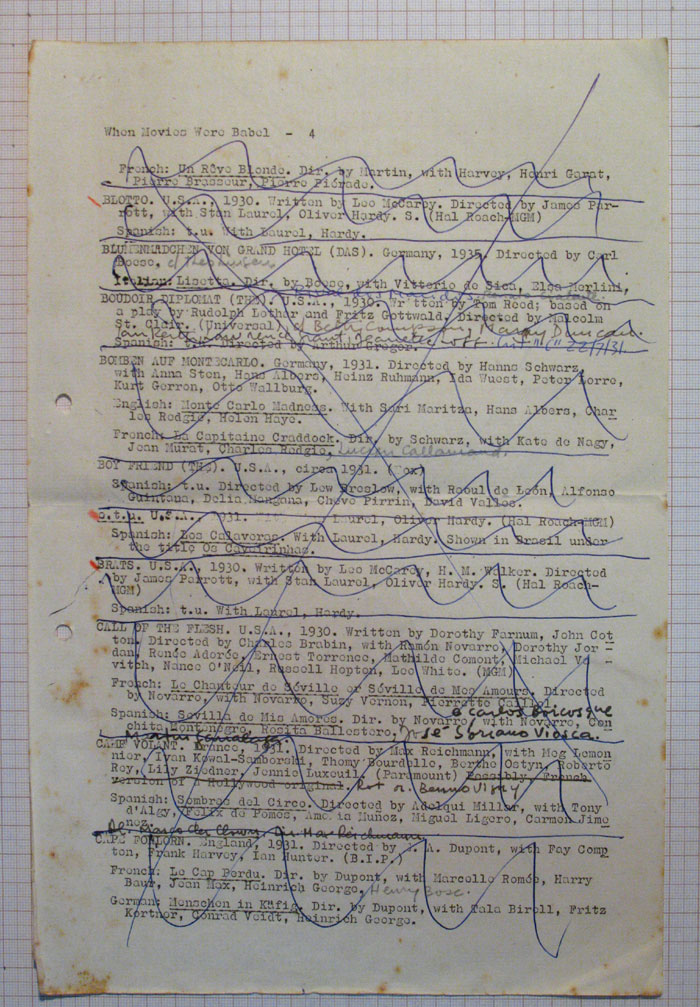 When Movies Were Babel - 4
French: Un Rêve Blonde. Dir. by Martin, with Harvey, Henri Garat,
Pierre Brasseur, Pierre Piérade.
BLOTTO. U.S.A., 1930. Written by Leo McCarey. Directed by James Par-
rott, with Stan Laurel, Oliver Hardy. S. (Hal Roach-MGM)
Spanish: t.u. With Laurel, Hardy.
BLUMENMADCHEN VON GRAND HOTEL (DAS). Germany, 1935. Directed by Carl
Boese,
Italian: Lisetta. Dir. by Boese, with Vittorio de Sica, Elsa Merlini,
BOUDOIR DIPLOMAT (THE). U.S.A., 1930. Written by Tom Reed; based on
a play by Rudolph Lothar and Fritz Gottwald. Directed by Malcolm
St. Clair. (Universal) c/ Betty Compson, Mary Duncan
Ian Keith
Spanish: Directed by Arthur Gregor. 22/7/31.
BOMBEN AUF MONTECARLO. Germany, 1931. Directed by Hanns Schwarz,
with Anna Sten, Hans Albers, Heinz Ruhmann, Ida Wuest, Peter Lorre,
Kurt Gerron, Otto Wallburg.
English: Monte Carlo Madness. With Sari Maritza, Hans Albers, Char
les Redgie, Helen Haye.
French: La Capitaine Craddock. Dir. by Schwarz, with Kate de Nagy,
Jean Murat, Charles Redgie, Lucien Callamand.
BOY FRIEND (THE). U.S.A., circa 1931. (Fox)
Spanish: t.u. Directed by Lew Breslow, with Raoul de León, Alfonso
Guintana, Delia Mangana, Chevo Pirrin, David Valles.
o.t.u. U.S.A., 1931. Laurel, Oliver Hardy. (Hal Roach-MGM)
Spanish: Los Calaveras. With Laurel, Hardy. Shown in Brasil under
the title Os Caveirinhas.
BRATS. U.S.A., 1930. Written by Leo McCarey, H. M. Walker. Directed
by James Parrott, with Stan Laurel, Oliver Hardy. S. (Hal Roach-
MGM)
Spanish: t.u. With Laurel, Hardy.
CALL OF THE FLESH. U.S.A., 1930. Written by Dorothy Farnum, John Cot
ton. Directed by Charles Brabin, with Ramón Novarro, Dorothy Jor
dan, Renée Adorée, Ernest Torrence, Mathilde Comont, Michael Va
vitch, Nance O'Neil, Russell Hopton, Leo White. (MGM)
French: Le Chanteur de Séville or Séville de Mes Amours. Directed
by Novarro, with Novarro, Suzy Vernon, Pierrette Caillol
e Carlos Bricosque
Spanish: Sevilla de Mis Amores. Dir. by Novarro, with Novarro, Con
chita Montenegro, Rosita Ballestero, José Soriano Viosca.
CAMP VOLANT. France, 1931. Directed by Max Reichmann, with Meg Lemon
nier, Ivan Kowal-Samborski, Thomy Bourdelle, Berthe Ostyn, Roberto
Rey, Lily Ziedner, Jennie Luxeuil. (Paramount) Possibly, French
version of a Hollywood original. Rot. n. Benno Vigny
Spanish: Sombras del Circo. Directed by Adelqui Millar, with Tony
d'Algy, Felix de Pomes, Amelia Muñoz, Miguel Ligero, Carmen Jime
nez.
Al. Marco der Clown. Dir. Max Reichmann
CAPE FORLORN. England, 1931. Directed by E. A. Dupont, with Fay Comp
ton, Frank Harvey, Ian Hunter. (B.I.P.)
French: Le Cap Perdu. Dir. by Dupont, with Marcelle Romée, Harry
Baur, Jean Max, Heinrich George. Henry Bosc.
German: Menschen in Käfig. Dir. by Dupont, with Tala Birell, Fritz
Kortner, Conrad Veidt, Heinrich George.